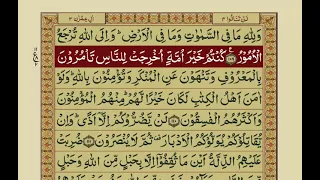 لن تنالوا ۴ آل عمرٰن ۳
وَلِلّٰهِ مَا فِى السَّمٰوٰتِ وَمَا فِى الْاَرْضِ ؕ وَاِلَى اللّٰهِ تُرْجَعُ
الْاُمُوْرُ ﴿۱۰۹﴾ كُنْتُمْ خَيْرَ اُمَّةٍ اُخْرِجَتْ لِلنَّاسِ تَاْمُرُوْنَ
بِالْمَعْرُوْفِ وَتَنْهَوْنَ عَنِ الْمُنْكَرِ وَتُؤْمِنُوْنَ بِاللّٰهِ ؕ وَلَوْ
اٰمَنَ اَهْلُ الْكِتٰبِ لَكَانَ خَيْرًا لَّهُمْ ؕ مِنْهُمُ الْمُؤْمِنُوْنَ
وَاَكْثَرُهُمُ الْفٰسِقُوْنَ ﴿۱۱۰﴾ لَنْ يَّضُرُّوْكُمْ اِلَّاۤ اَذًى ؕ وَاِنْ
يُّقَاتِلُوْكُمْ يُوَلُّوْكُمُ الْاَدْبَارَ ثُمَّ لَا يُنْصَرُوْنَ ﴿۱۱۱﴾ ضُرِبَتْ
عَلَيْهِمُ الذِّلَّةُ اَيْنَ مَا ثُقِفُوْۤا اِلَّا بِحَبْلٍ مِّنَ اللّٰهِ وَحَبْلٍ